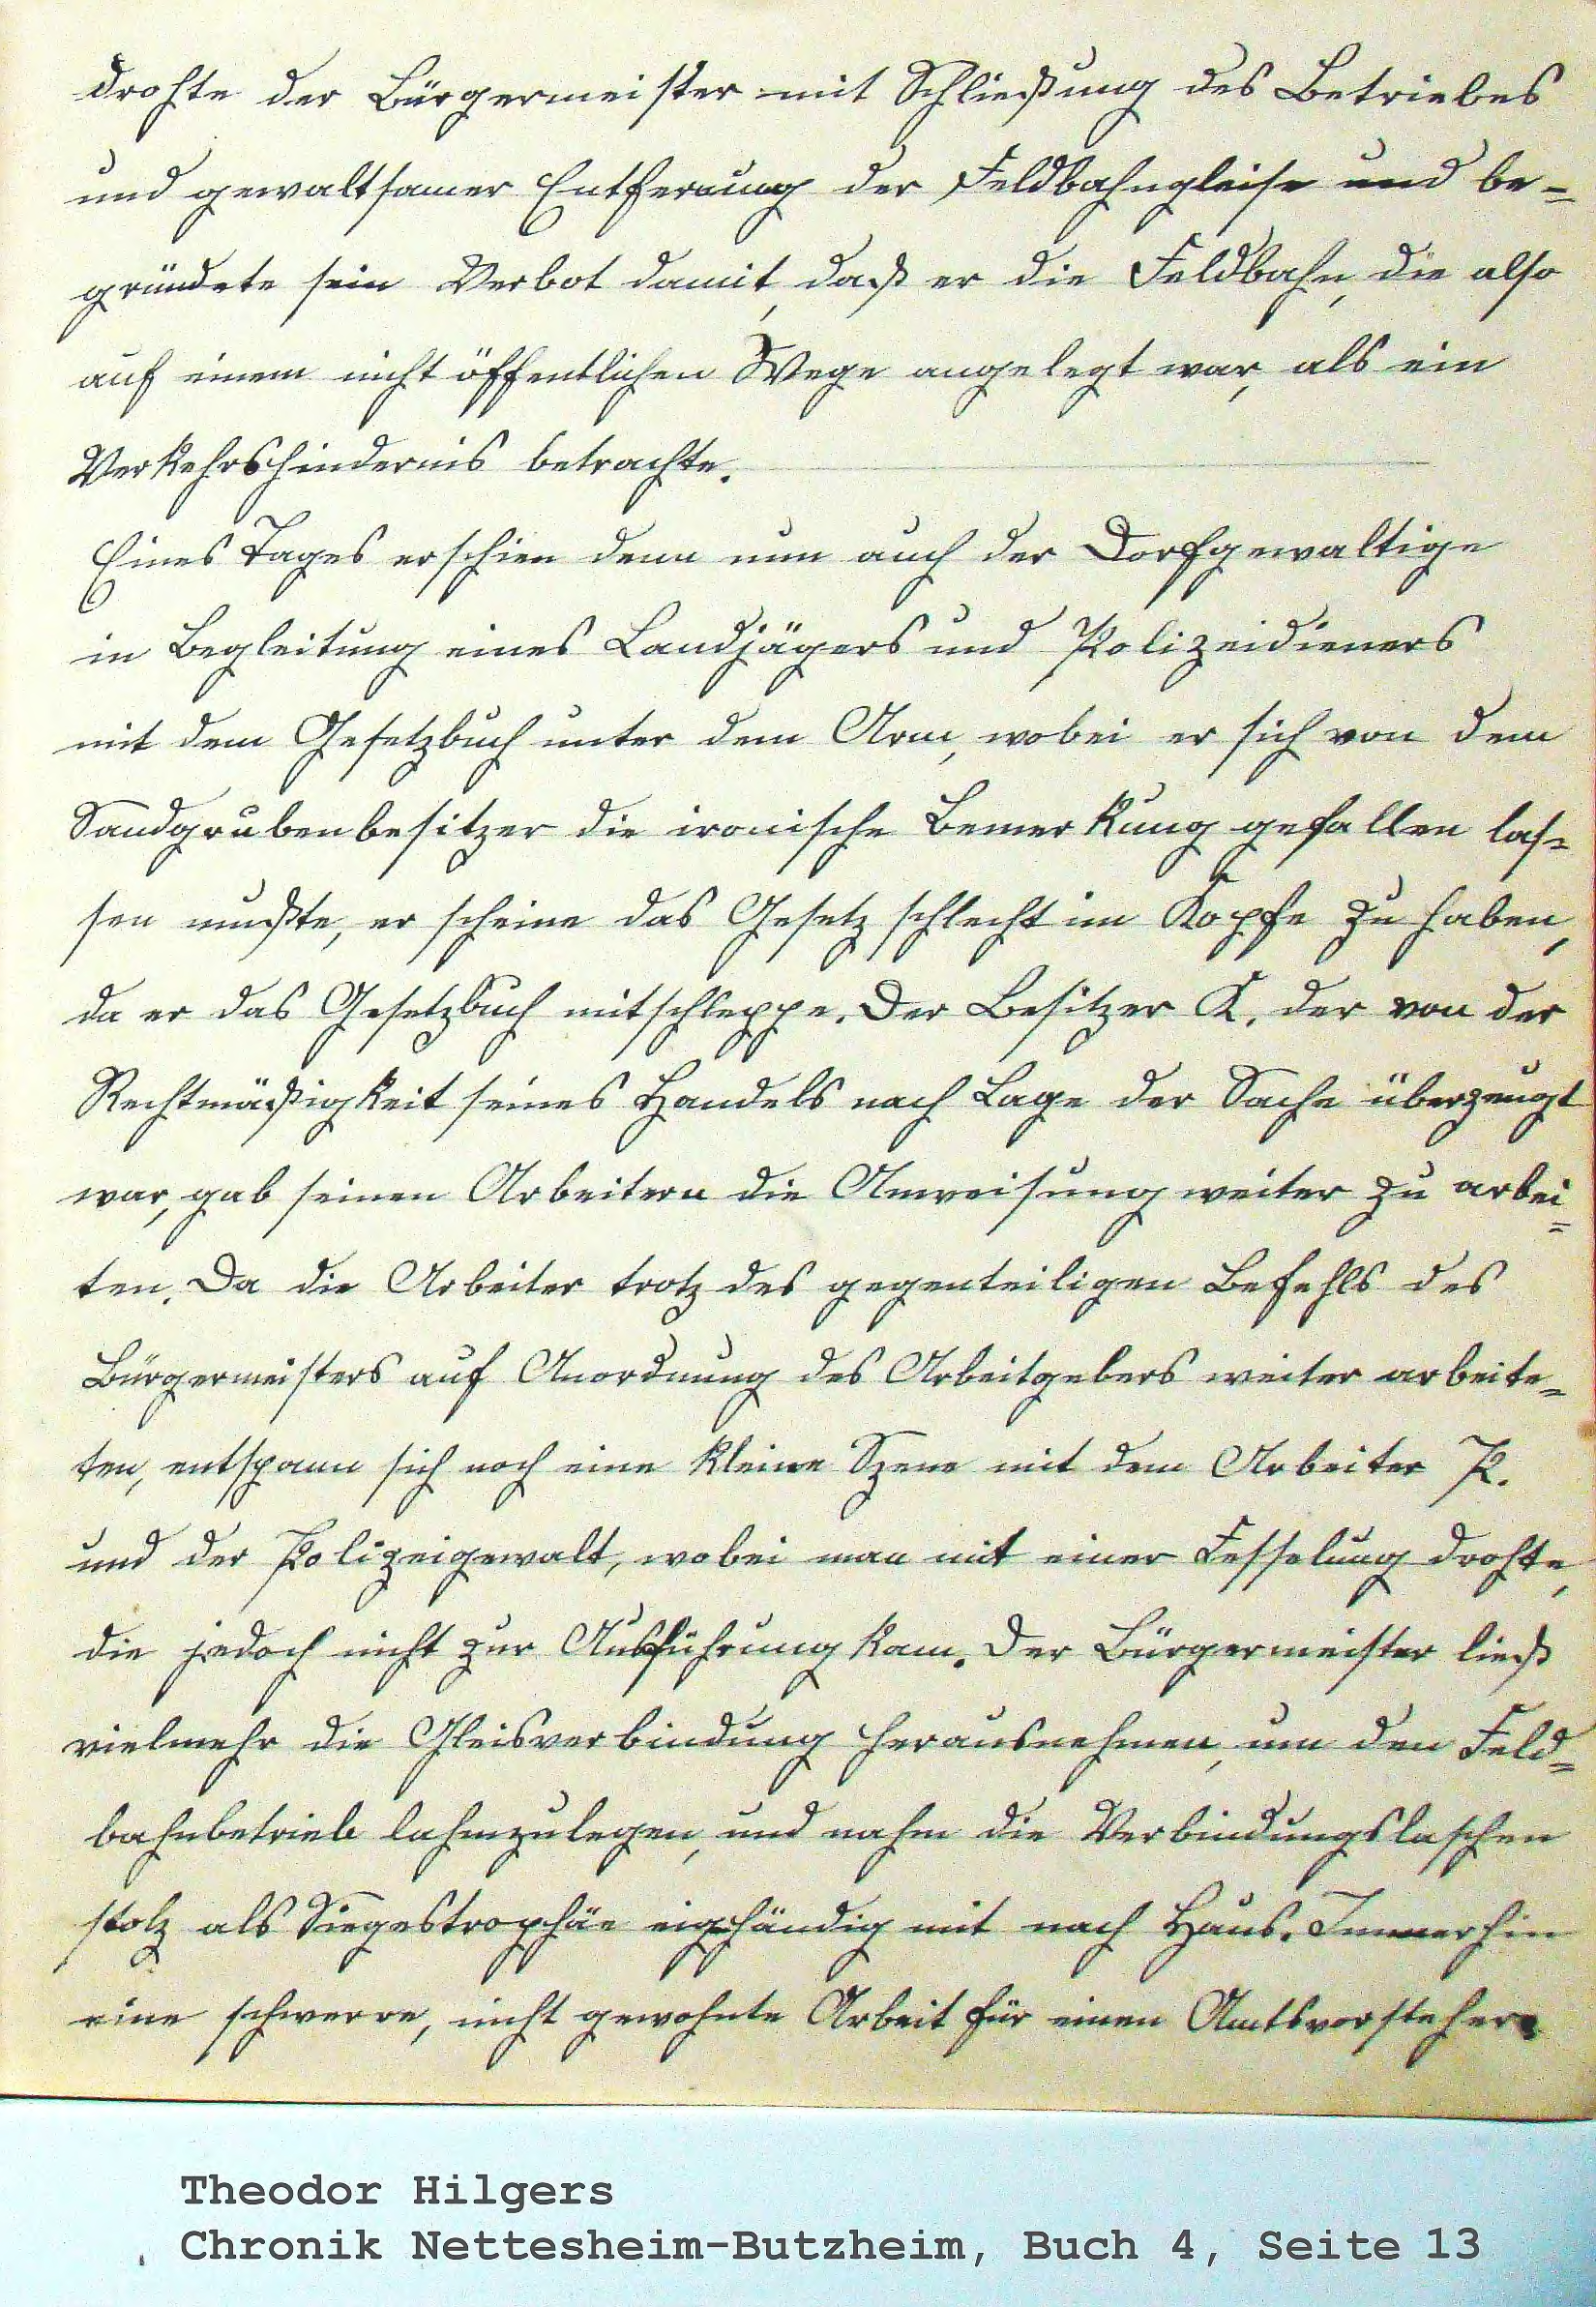 drohte der Bürgermeister mit Schließung des Betriebes
und gewaltsamer Entfernung der Feldbahngleise und be-
gründete sein Verbot damit, daß er die Feldbahn, die also
auf einem nicht öffentlichen Wege angelegt war, als ein
Verkehrshindernis betrachte.
Eines Tages erschien denn nun auch der Dorfgewaltige
in Begleitung eines Landjägers und Polizeidieners
mit dem Gesetzbuch unter dem Arm, wobei er sich von dem
Sandgrubenbesitzer die ironische Bemerkung gefallen las-
sen mußte, er scheine das Gesetz schlecht im Kopfe zu haben,
da er das Gesetzbuch mitschleppe. Der Besitzer K. der von der
Rechtmäßigkeit seines Handels nach Lage der Sache überzeugt
war, gab seinen Arbeitern die Anweisung weiter zu arbei-
ten. Da die Arbeiter trotz des gegenteiligen Befehls des
Bürgermeisters auf Anordnung des Arbeitgebers weiter arbeite-
ten, entspann sich noch eine kleine Szene mit dem Arbeiter P.
und der Polizeigewalt, wobei man mit einer Fesselung drohte,
die jedoch nicht zur Ausführung kam. Der Bürgermeister ließ
vielmehr die Gleisverbindung herausnehmen, um den Feld-
bahnbetrieb lahmzulegen, und nahm die Verbindungslaschen
stolz als Siegestrophäe eighändig mit nach Haus. Immerhin
eine schwere, nicht gewohnte Arbeit für einen Amtsvorsteher.
Theodor Hilgers
Chronik Nettesheim-Butzheim, Buch 4, Seite 13